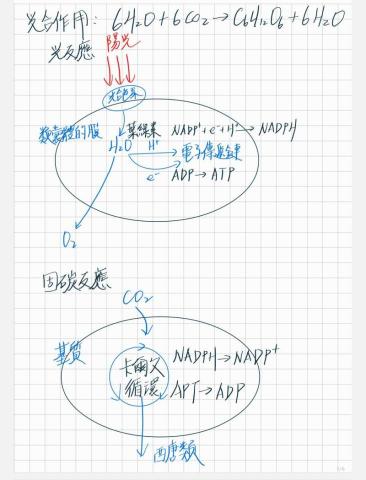 光合作用: 6H2O+6CO2→C6H12O6+6H2O
光反應 陽光
光合色素
類囊體的膜 葉綠素 NADP⁺+e⁻+H⁺→NADPH
H2O H⁺ 電子傳遞鏈
e⁻ ADP→ATP
O2
固碳反應
CO2
基質 卡爾文循環 NADPH→NADP⁺
APT→ADP
醣類